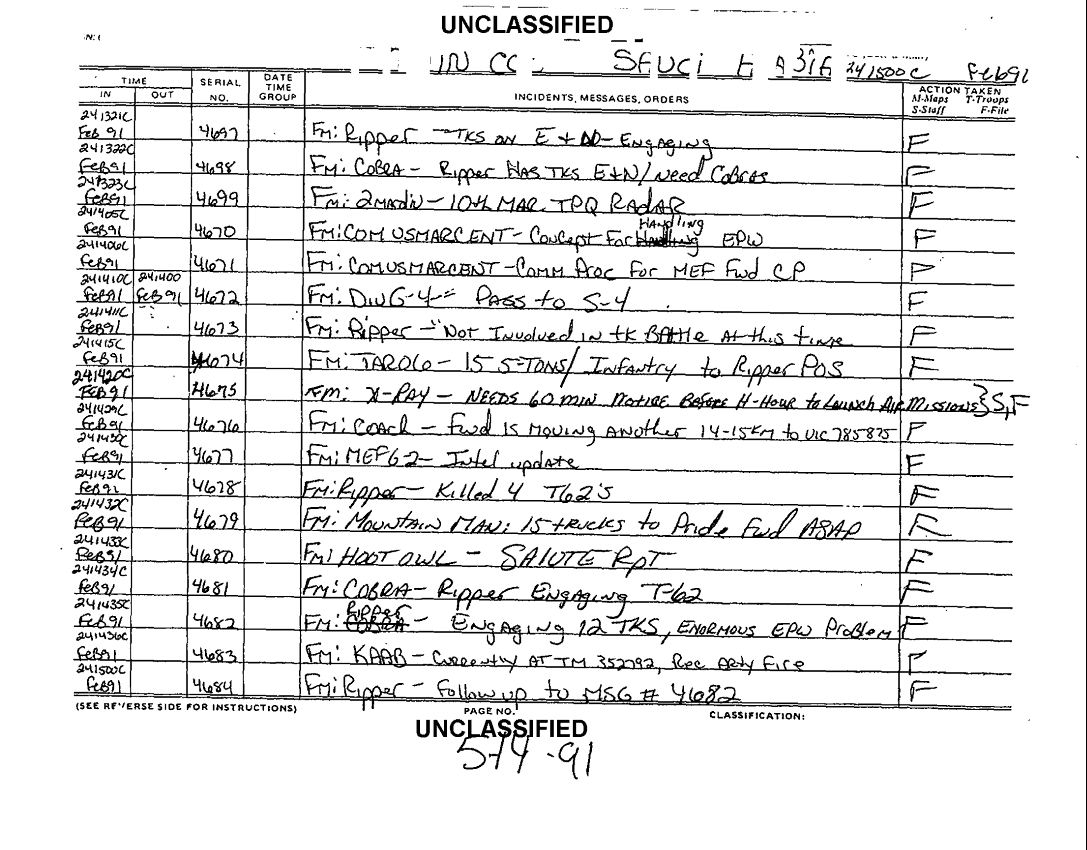 UNCLASSIFIED
IN CC SFUCI 241500C Feb91
TIME SERIAL NO. DATE TIME GROUP INCIDENTS, MESSAGES, ORDERS ACTION TAKEN
IN OUT M-Maps T-Troops S-Staff F-File
241321C Feb 91 4697 Fm: Ripper - TKS on E + - Engaging F
241322C Feb91 4698 Fm: COBRA - Ripper HAS TKS E+N/Need Cobras F
241323C Feb91 4699 Fm: 2MarDiv - 10th MAR. TPQ RADAR F
241405C Feb91 4670 Fm: COMUSMARCENT - Concept For Handling EPW F
241406C Feb91 4671 Fm: COMUSMARCENT - Comm Proc For MEF Fwd CP F
241410C Feb91 241400 Feb91 4672 Fm: Div G-4 - Pass to S-4 F
241411C Feb91 4673 Fm: Ripper - "Not Involved in tk Battle At this time F
241415C Feb91 4674 Fm: TARO6 - 15 5-TONS/ Infantry to Ripper POS F
241420C Feb91 4675 Fm: X-RAY - NEEDS 60 min Notice Before H-Hour to Launch Air Missions } S,F
Feb91 4676 Fm: Coach - Fwd IS MOVING ANOTHER 14-15KM to vic 785875 F
241430C Feb91 4677 Fm: MEF G-2 - Intel update F
241431C Feb91 4678 Fm: Ripper - Killed 4 T62's F
241432C Feb91 4679 Fm: Mountain Man: 15 trucks to Pride Fwd ASAP F
241433C Feb91 4680 Fm: HOOT OWL - SALUTE RPT F
241434C Feb91 4681 Fm: COBRA - Ripper Engaging T-62 F
241435C Feb91 4682 Fm: Ripper - Engaging 12 TKS, Enormous EPW Problem F
241436C Feb91 4683 Fm: KAAB - Currently AT TM 352792, Rec Arty Fire F
241500C Feb91 4684 Fm: Ripper - Follow up to MSG # 4682 F
(SEE REVERSE SIDE FOR INSTRUCTIONS) PAGE NO. CLASSIFICATION:
UNCLASSIFIED